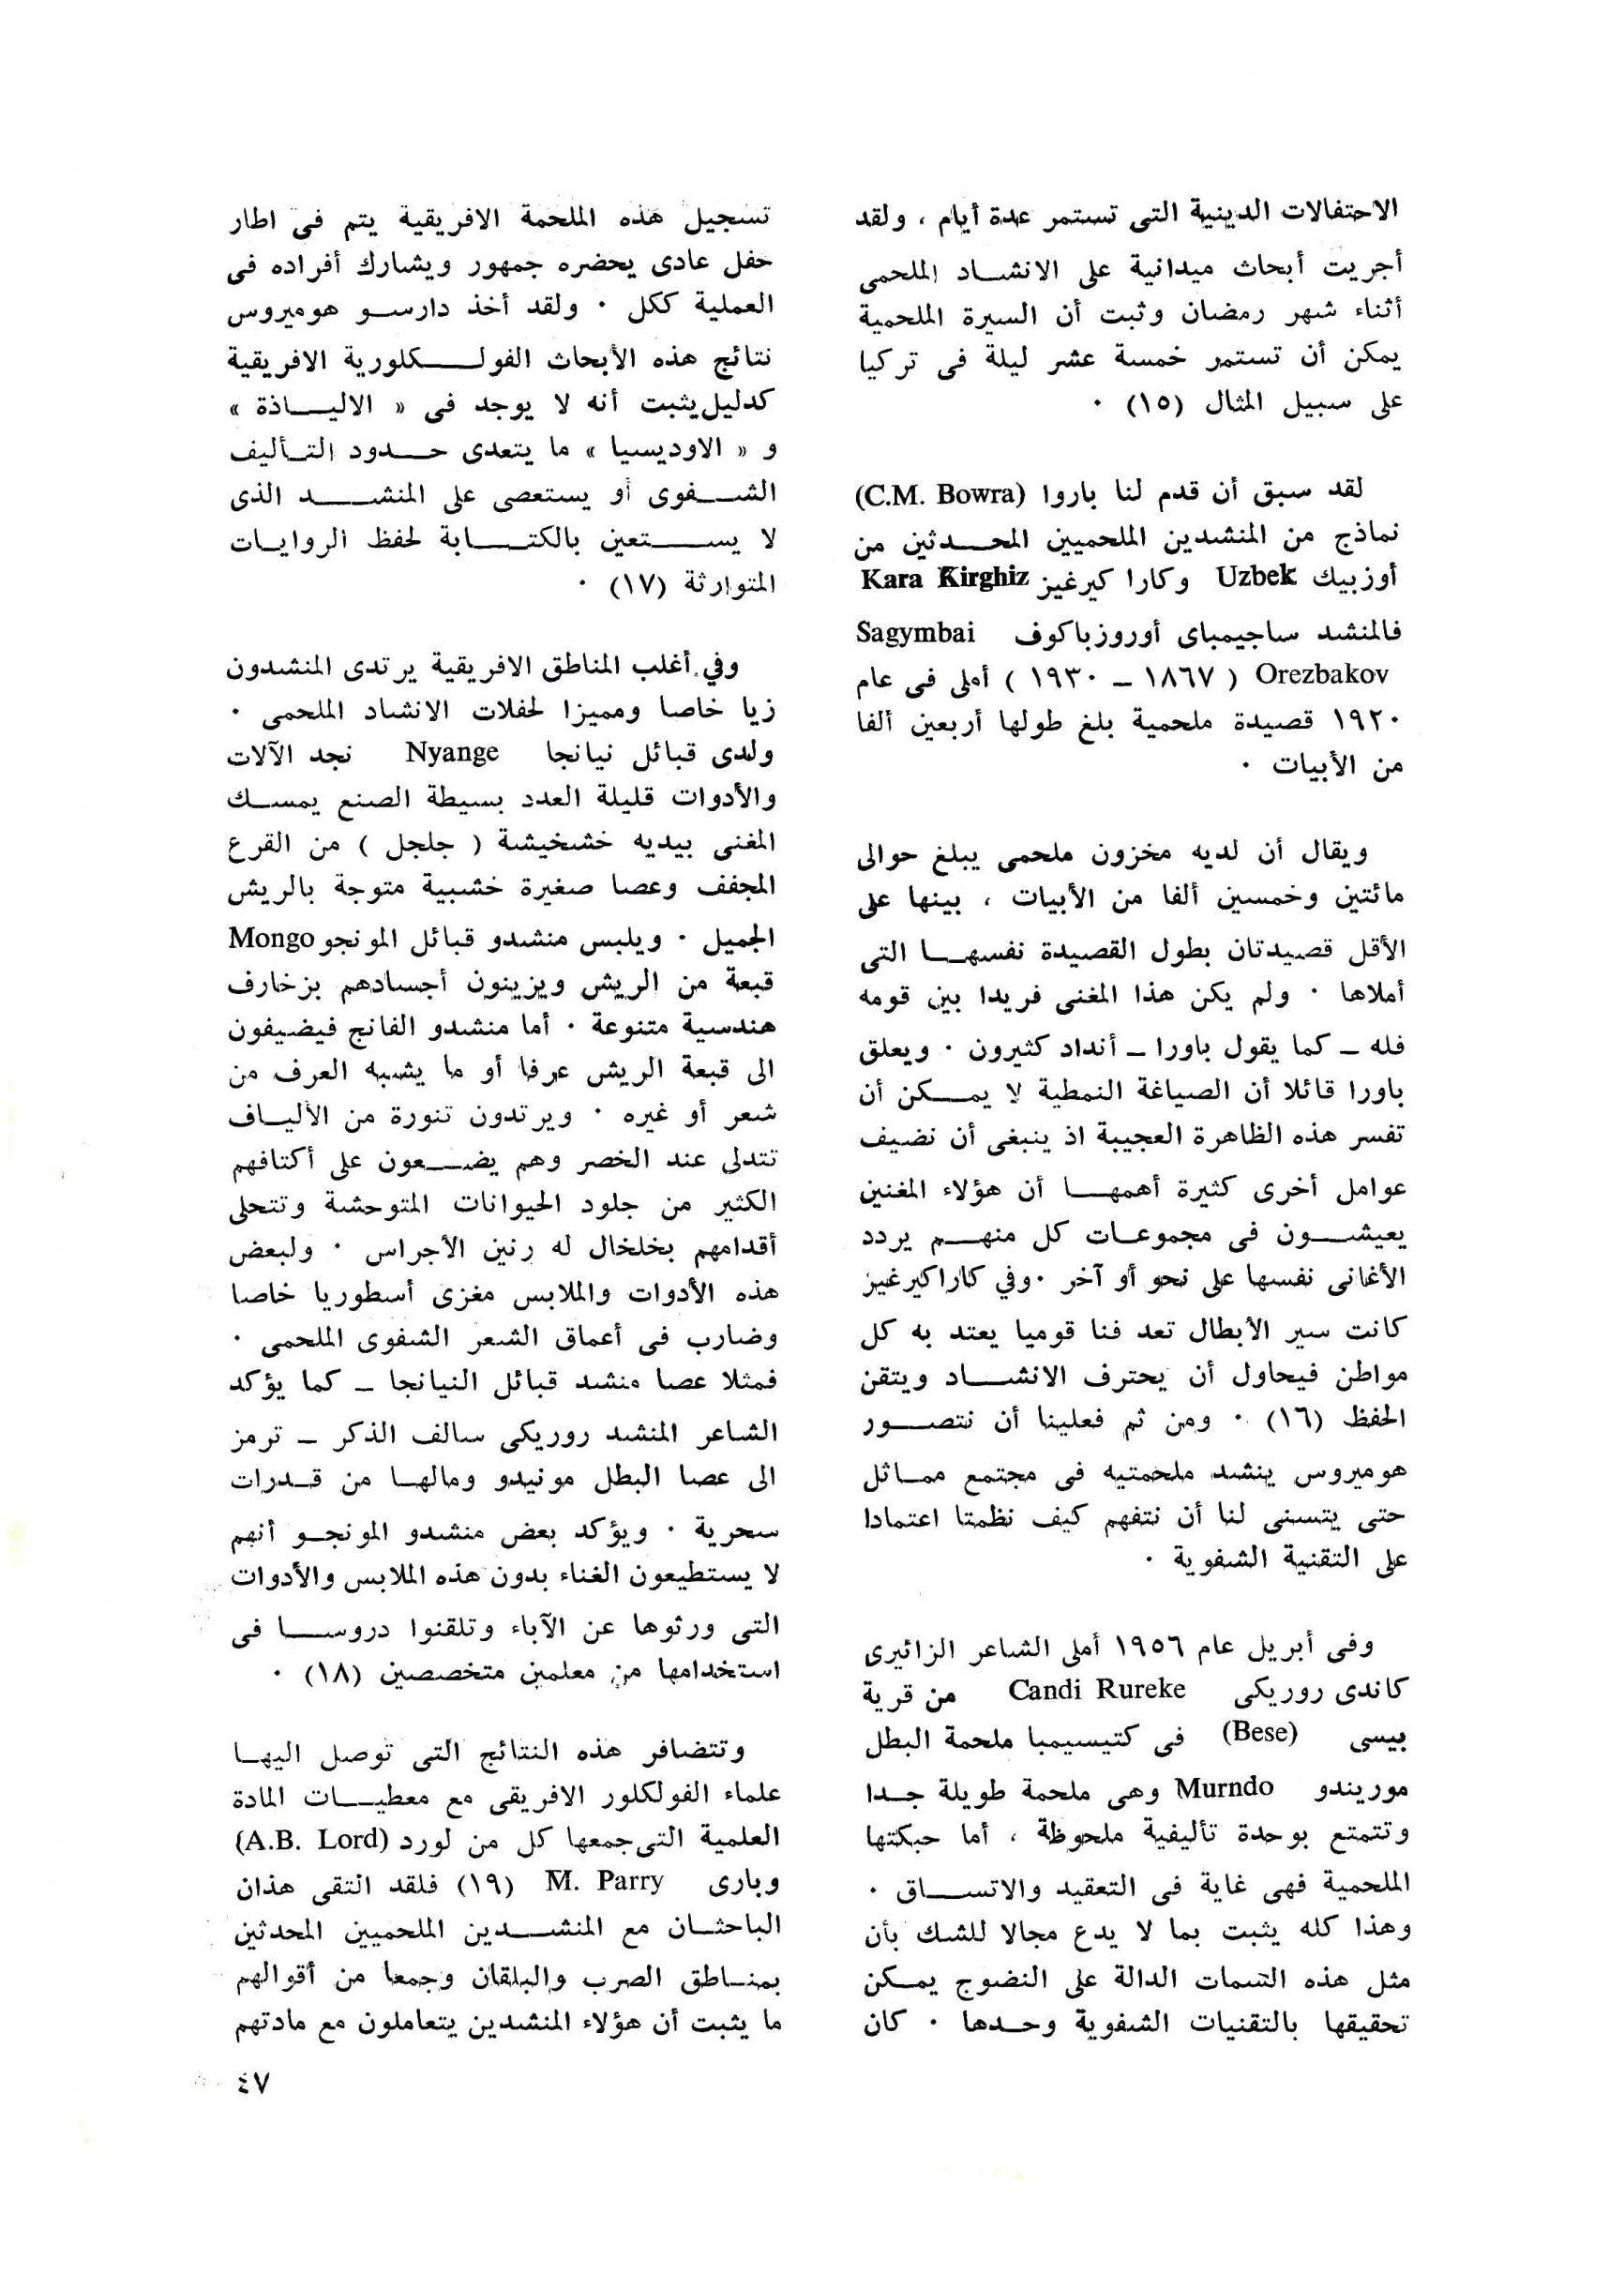 الاحتفالات الدينية التى تستمر عدة أيام ، ولقد
أجريت أبحاث ميدانية على الانشاد الملحمى
أثناء شهر رمضان وثبت أن السيرة الملحمية
يمكن أن تستمر خمسة عشر ليلة فى تركيا
على سبيل المثال (١٥) ٠
لقد سبق أن قدم لنا باروا (C.M. Bowra)
نماذج من المنشدين الملحميين المحدثين من
أوزبيك Uzbek وكارا كيرغيز Kara Kirghiz
فالمنشد ساجيمباى أوروزباكوف Sagymbai
Orezbakov ( ١٨٦٧ ــ ١٩٣٠ ) أملى فى عام
١٩٢٠ قصيدة ملحمية بلغ طولها أربعين ألفا
من الأبيات ٠
ويقال أن لديه مخزون ملحمى يبلغ حوالى
مائتين وخمسين ألفا من الأبيات ، بينها على
الأقل قصيدتان بطول القصيدة نفسها التى
أملاها ٠ ولم يكن هذا المغنى فريدا بين قومه
فله ــ كما يقول باورا ــ أنداد كثيرون ٠ ويعلق
باورا قائلا أن الصياغة النمطية لا يمكن أن
تفسر هذه الظاهرة العجيبة اذ ينبغى أن نضيف
عوامل أخرى كثيرة أهمها أن هؤلاء المغنين
يعيشون فى مجموعات كل منهم يردد
الأغانى نفسها على نحو أو آخر ٠ وفي كاراكيرغيز
كانت سير الأبطال تعد فنا قوميا يعتد به كل
مواطن فيحاول أن يحترف الانشاد ويتقن
الحفظ (١٦) ٠ ومن ثم فعلينا أن نتصور
هوميروس ينشد ملحمتيه فى مجتمع مماثل
حتى يتسنى لنا أن نتفهم كيف نظمتا اعتمادا
على التقنية الشفوية ٠
وفى أبريل عام ١٩٥٦ أملى الشاعر الزائيرى
كاندى روريكى Candi Rureke من قرية
بيسى (Bese) فى كتيسيمبا ملحمة البطل
موريندو Murndo وهى ملحمة طويلة جدا
وتتمتع بوحدة تأليفية ملحوظة ، أما حبكتها
الملحمية فهى غاية فى التعقيد والاتساق ٠
وهذا كله يثبت بما لا يدع مجالا للشك بأن
مثل هذه السمات الدالة على النضوج يمكن
تحقيقها بالتقنيات الشفوية وحدها ٠ كان
تسجيل هذه الملحمة الافريقية يتم فى اطار
حفل عادى يحضره جمهور ويشارك أفراده فى
العملية ككل ٠ ولقد أخذ دارسو هوميروس
نتائج هذه الأبحاث الفولكلورية الافريقية
كدليل يثبت أنه لا يوجد فى « الالياذة »
و « الاوديسيا » ما يتعدى حدود التأليف
الشفوى أو يستعصى على المنشد الذى
لا يستعين بالكتابة لحفظ الروايات
المتوارثة (١٧) ٠
وفي أغلب المناطق الافريقية يرتدى المنشدون
زيا خاصا ومميزا لحفلات الانشاد الملحمى ٠
ولدى قبائل نيانجا Nyange نجد الآلات
والأدوات قليلة العدد بسيطة الصنع يمسك
المغنى بيديه خشخيشة ( جلجل ) من القرع
المجفف وعصا صغيرة خشبية متوجة بالريش
الجميل ٠ ويلبس منشدو قبائل المونجو Mongo
قبعة من الريش ويزينون أجسادهم بزخارف
هندسية متنوعة ٠ أما منشدو الفانج فيضيفون
الى قبعة الريش عرفا أو ما يشبه العرف من
شعر أو غيره ٠ ويرتدون تنورة من الألياف
تتدلى عند الخصر وهم يضعون على أكتافهم
الكثير من جلود الحيوانات المتوحشة وتتحلى
أقدامهم بخلخال له رنين الأجراس ٠ ولبعض
هذه الأدوات والملابس مغزى أسطوريا خاصا
وضارب فى أعماق الشعر الشفوى الملحمى ٠
فمثلا عصا منشد قبائل النيانجا ــ كما يؤكد
الشاعر المنشد روريكى سالف الذكر ــ ترمز
الى عصا البطل مونيدو ومالها من قدرات
سحرية ٠ ويؤكد بعض منشدو المونجو أنهم
لا يستطيعون الغناء بدون هذه الملابس والأدوات
التى ورثوها عن الآباء وتلقنوا دروسا فى
استخدامها من معلمين متخصصين (١٨) ٠
وتتضافر هذه النتائج التى توصل اليها
علماء الفولكلور الافريقى مع معطيات المادة
العلمية التى جمعها كل من لورد (A.B. Lord)
وبارى M. Parry (١٩) فلقد التقى هذان
الباحثان مع المنشدين الملحميين المحدثين
بمناطق الصرب والبلقان وجمعا من أقوالهم
ما يثبت أن هؤلاء المنشدين يتعاملون مع مادتهم
٤٧